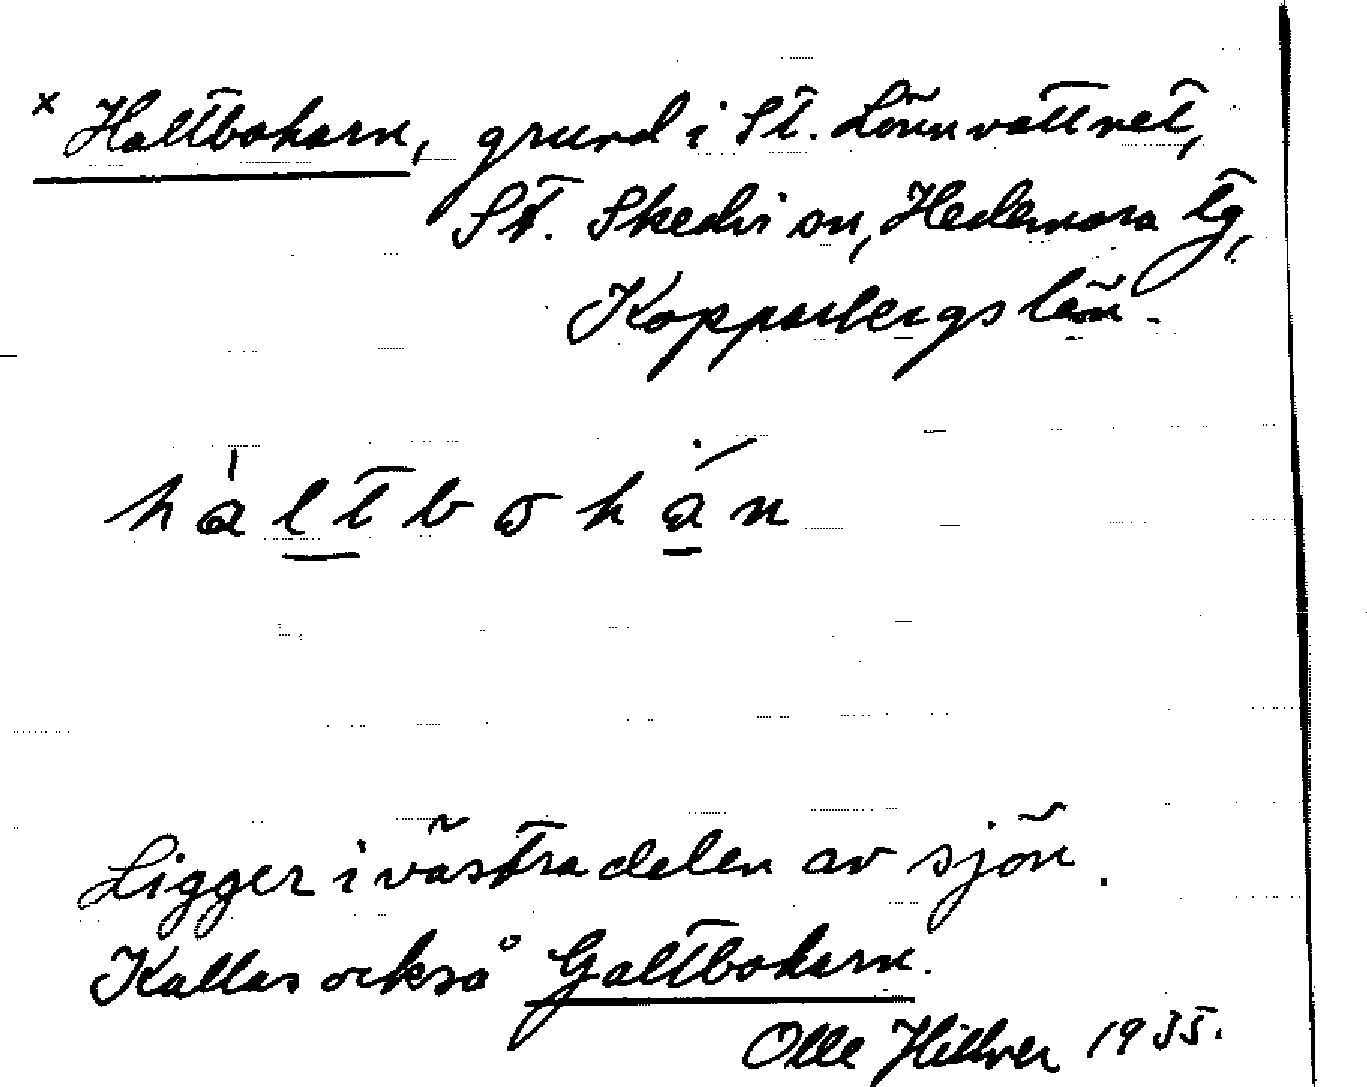 x Haltboharn, grund i St. Lönnvattnet,
St. Skedvi sn, Hedemora tg,
Kopparbergs län.
håltbohán
Ligger i västra delen av sjön.
Kallas också Galtboharn.
Olle Hillver 1935.